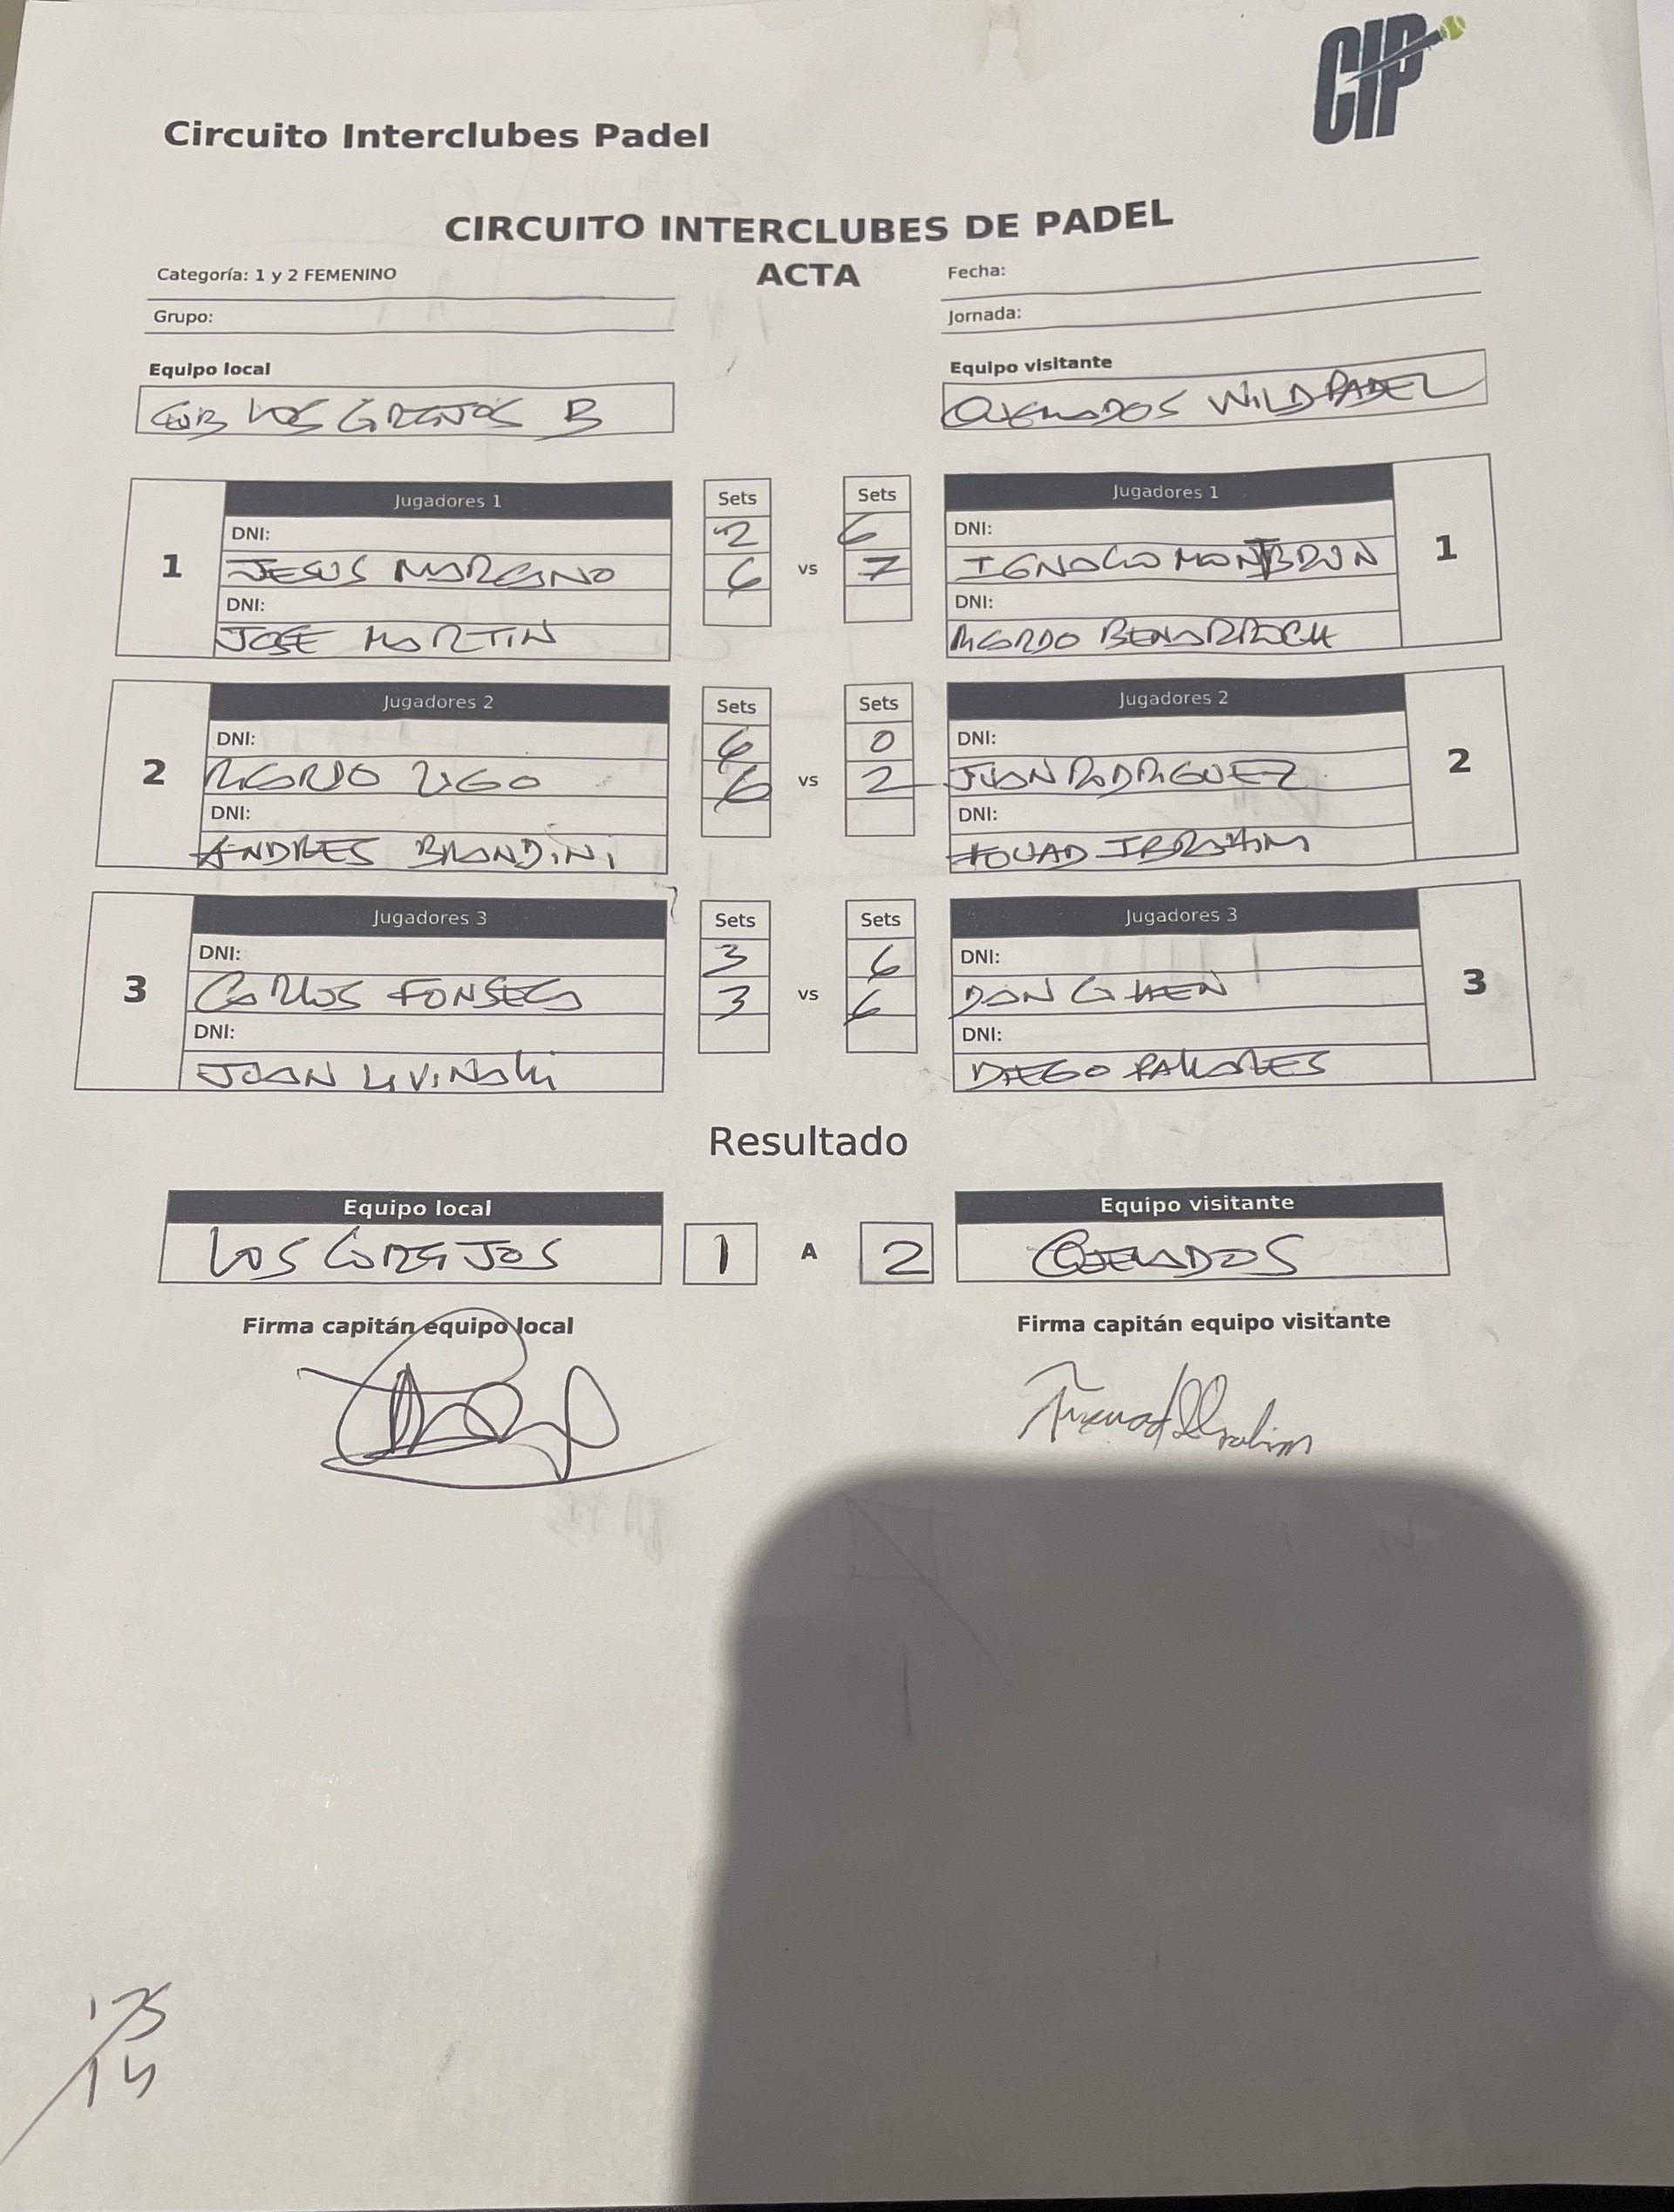 CIP
Circuito Interclubes Padel
CIRCUITO INTERCLUBES DE PADEL
ACTA
Categoría: 1 y 2 FEMENINO
Fecha:
Grupo:
Jornada:
Equipo local
Equipo visitante
LOS B
QUEMADOS WILDPADEL
1 Jugadores 1 Sets Sets Jugadores 1 1
DNI: 2 6 DNI:
JESUS MARCANO 6 vs 7 IGNACIO MONTBRUN
DNI: DNI:
JOSE MARTIN RICARDO BENARROCH
2 Jugadores 2 Sets Sets Jugadores 2 2
DNI: 6 0 DNI:
RICARDO 6 vs 2 JUAN RODRIGUEZ
DNI: DNI:
ANDRES BRANDINI FOUAD IBRAHIM
3 Jugadores 3 Sets Sets Jugadores 3 3
DNI: 3 6 DNI:
CARLOS FONSECA 3 vs 6 DAN
DNI: DNI:
JUAN DIEGO PALLARES
Resultado
Equipo local Equipo visitante
LOS 1 A 2
Firma capitán equipo local
Firma capitán equipo visitante